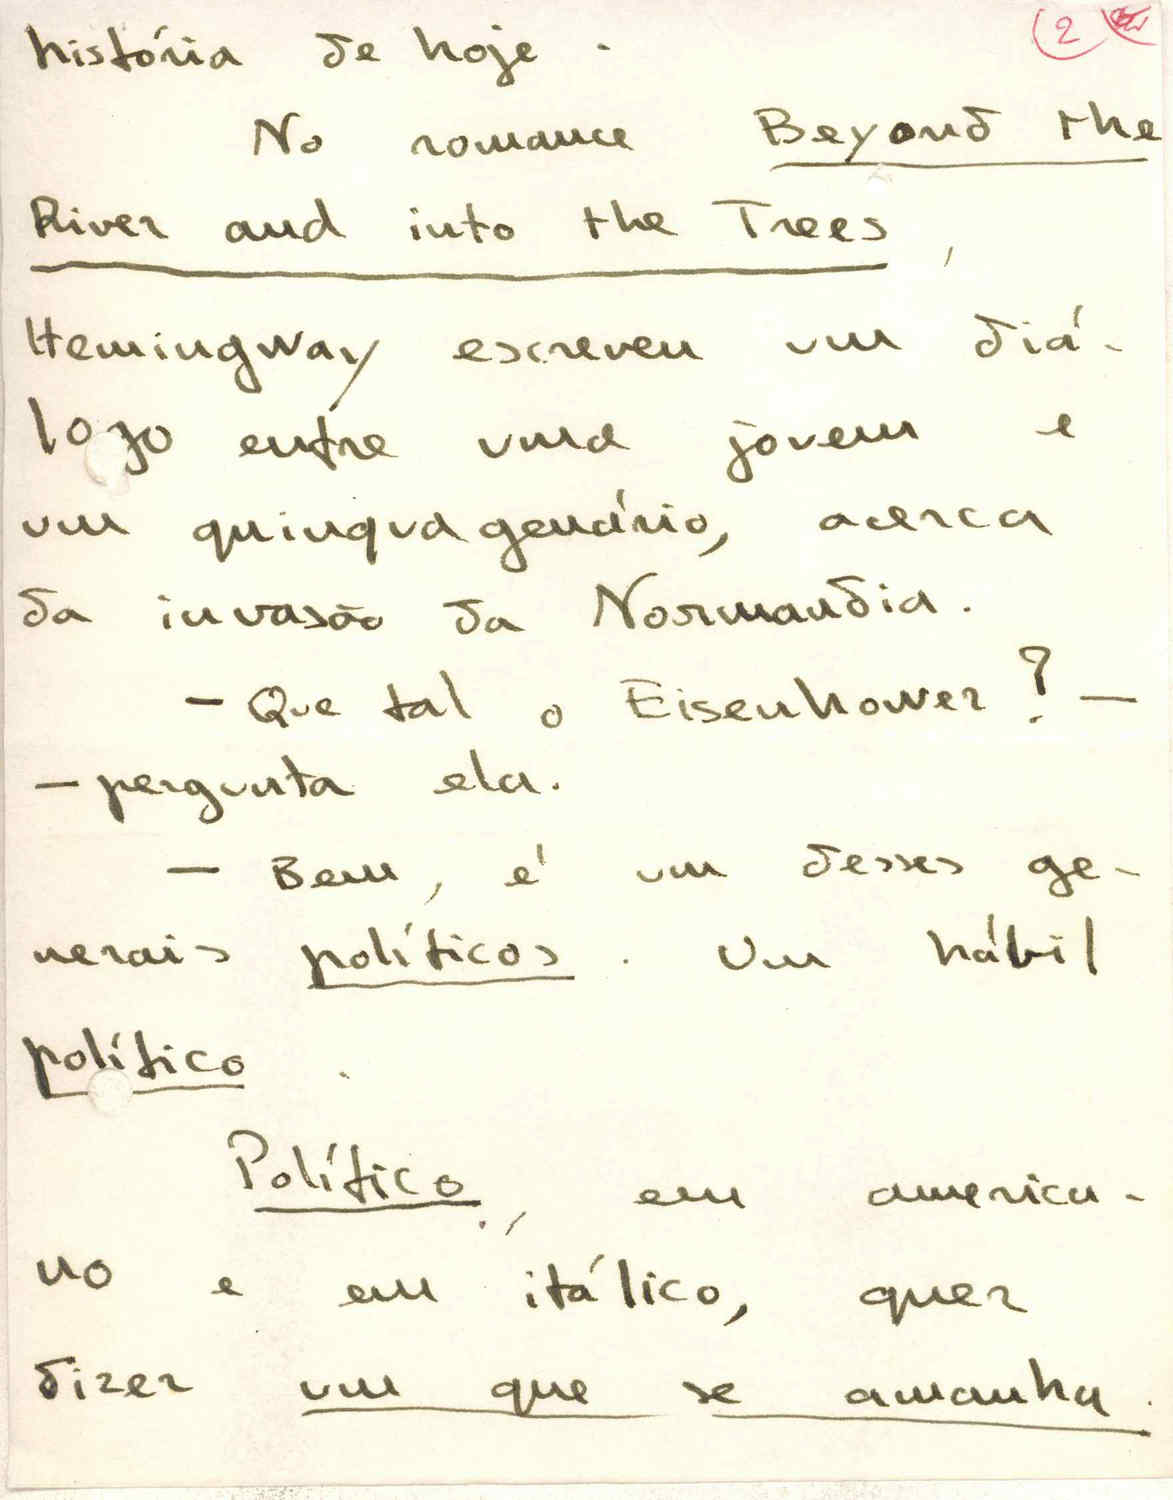 2
história de hoje.
No romance Beyond the
River and into the Trees,
Hemingway escreveu um diá-
logo entre uma jovem e
um quinquagenário, acerca
da invasão da Normandia.
— Que tal o Eisenhower? —
— pergunta ela.
— Bem, é um desses ge-
nerais políticos. Um hábil
político.
Político, em america-
no e em itálico, quer
dizer um que se amanha.